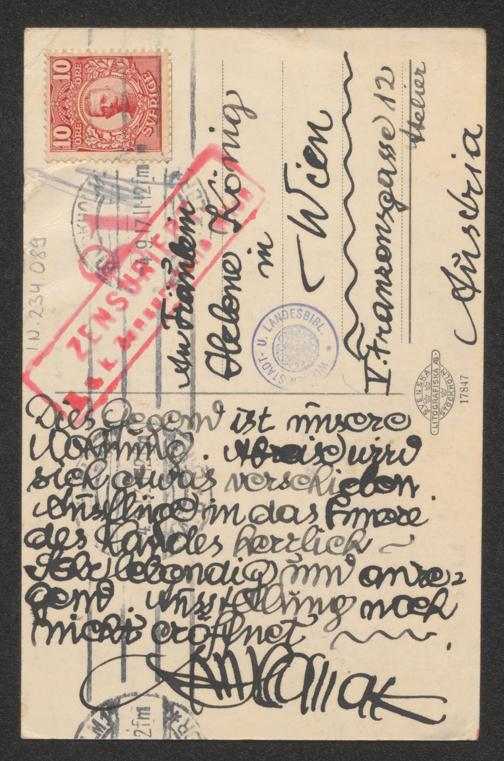 10 10
ÖRE ÖRE
SVERIGE
4.9.17.11-12fm
ZENSURIERT
An Fräulein
Helene König
in
Wien
V. Franzensgasse 12
Atelier
Austria
I.N. 234.089
STADT- U. LANDESBIBL.
SVENSKA
LITOGRAFISKA AB
STOCKHOLM
17847
Dies Gegend ist unsere
Wohnung. Abreise wird
sich etwas verschieben.
Ausflüge in das Innere
des Landes herrlich ~
Sehr lebendig und anre=
gend Ausstellung noch
nicht eröffnet
2fm